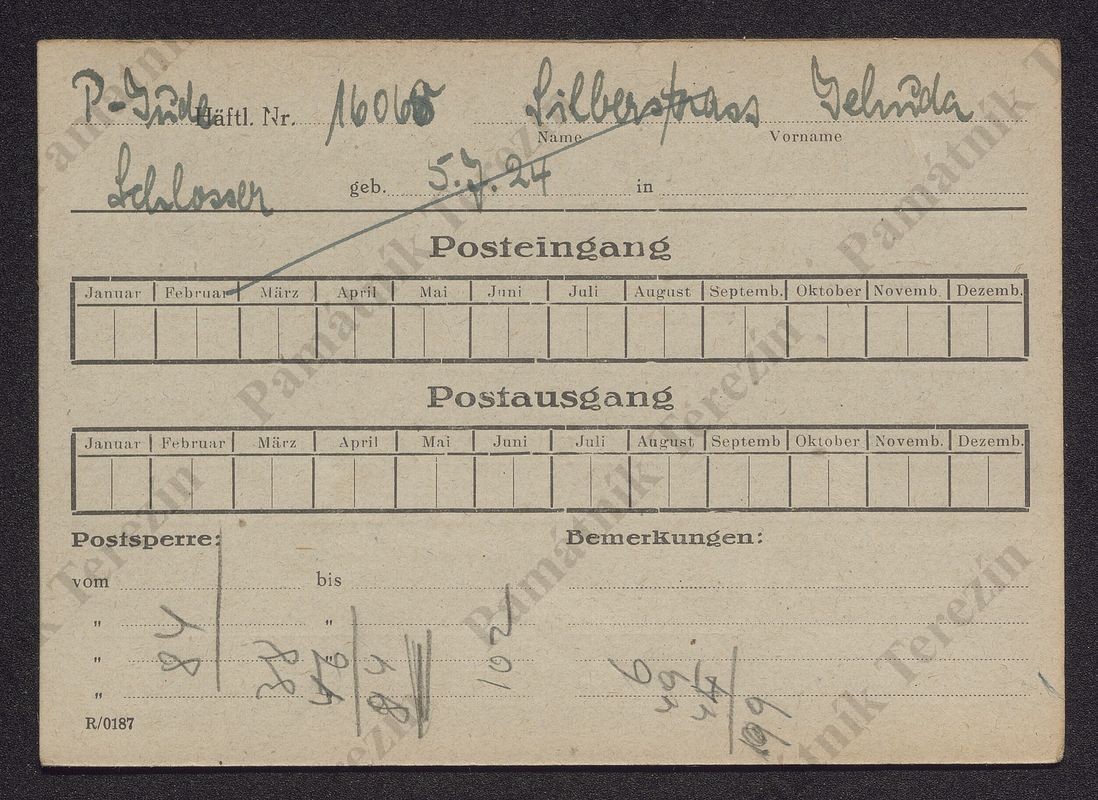 P-Jude Häftl. Nr. 16066 Silberstrass Jehuda
Name Vorname
Schlosser geb. 5.7.24 in
Posteingang
Januar Februar März April Mai Juni Juli August Septemb. Oktober Novemb. Dezemb.
Postausgang
Januar Februar März April Mai Juni Juli August Septemb Oktober Novemb. Dezemb.
Postsperre: Bemerkungen:
vom bis
" "
" "
"
R/0187
Památník Terezín